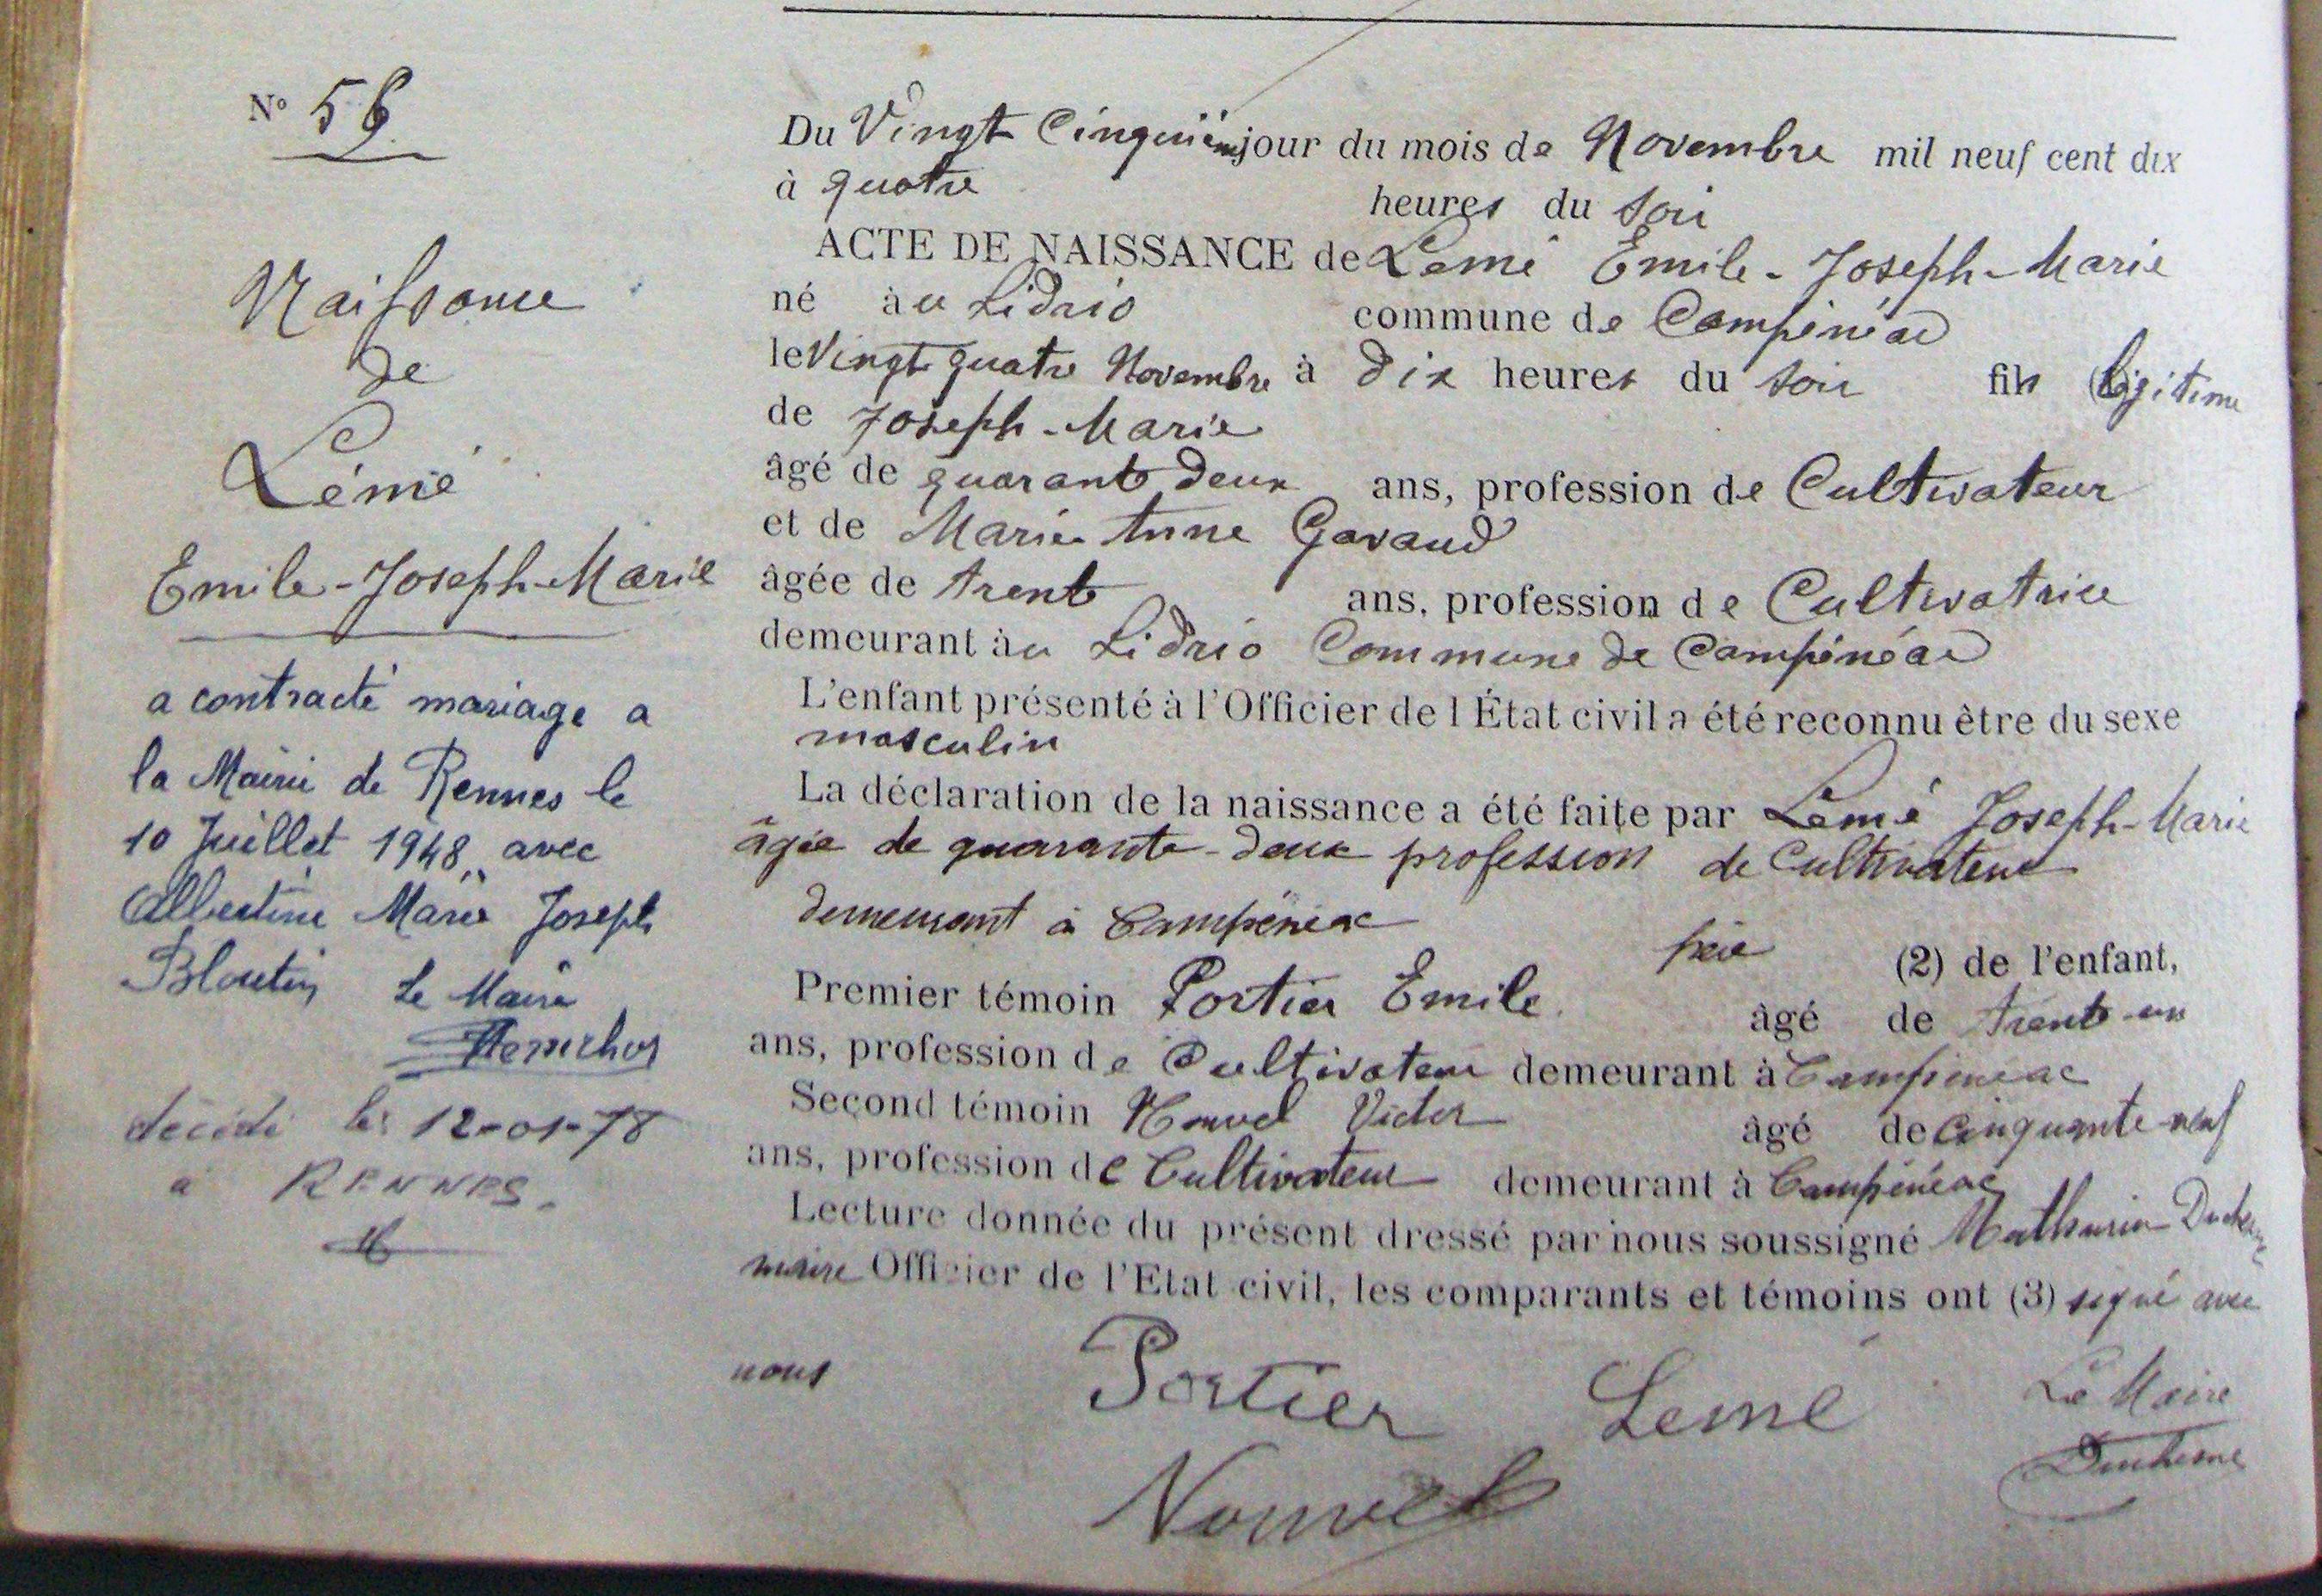 Naissance
de
Lémé
Emile-Joseph-Marie
a contracté mariage a
la Mairie de Rennes le
10 Juillet 1948, avec
Albertine Marie Joseph
Le Maire
décédé le 12-01-78
a RENNES.
Du Vingt Cinquième jour du mois de Novembre mil neuf cent dix
à quatre heures du soir
ACTE DE NAISSANCE de Lemé Emile-Joseph-Marie
né à u Lidrio commune de Campénéac
le Vingt quatre Novembre à dix heures du soir fils légitime
de Joseph-Marie
âgé de quarante deux ans, profession de Cultivateur
et de Marie Anne Gavaud
âgée de trente ans, profession de Cultivatrice
demeurant à u Lidrio Commune de Campénéac
L'enfant présenté à l'Officier de l État civil a été reconnu être du sexe
masculin
La déclaration de la naissance a été faite par Lemé Joseph-Marie
âgée de quarante-deux profession de Cultivateur
demeurant à Campénéac
père (2) de l'enfant,
Premier témoin Portier Emile âgé de trente-un
ans, profession de Cultivateur demeurant à Campénéac
Second témoin Nouvel Victor âgé de cinquante-neuf
ans, profession de Cultivateur demeurant à Campénéac
Lecture donnée du présent dressé par nous soussigné Mathurin
maire Officier de l'Etat civil, les comparants et témoins ont (3) signé avec
nous Portier Lemé Le Maire
Nouvel